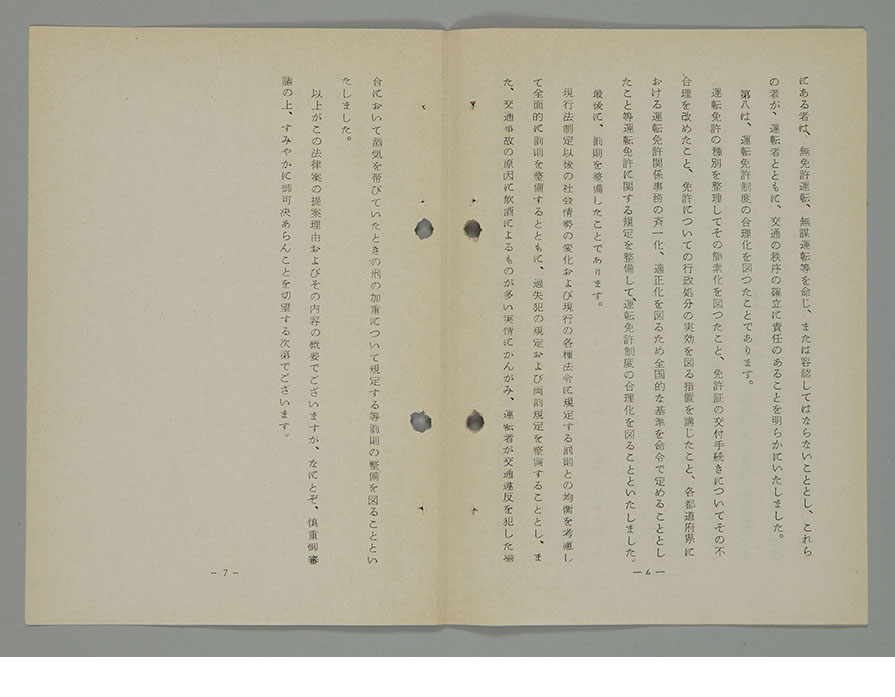 にある者は、無免許運転、無謀運転等を命じ、または容認してはならないこととし、これら
の者が、運転者とともに、交通の秩序の確立に責任のあることを明らかにいたしました。
第八は、運転免許制度の合理化を図つたことであります。
運転免許の種別を整理してその簡素化を図つたこと、免許証の交付手続きについてその不
合理を改めたこと、免許についての行政処分の実効を図る措置を講じたこと、各都道府県に
おける運転免許関係事務の斉一化、適正化を図るため全国的な基準を命令で定めることとし
たこと等運転免許に関する規定を整備して、運転免許制度の合理化を図ることといたしました。
最後に、罰則を整備したことであります。
現行法制定以後の社会情勢の変化および現行の各種法令に規定する罰則との均衡を考慮し
て全面的に罰則を整備するとともに、過失犯の規定および両罰規定を整備することとし、ま
た、交通事故の原因に飲酒によるものが多い実情にかんがみ、運転者が交通違反を犯した場
—6—
合において酒気を帯びていたときの刑の加重について規定する等罰則の整備を図ることとい
たしました。
以上がこの法律案の提案理由およびその内容の概要でございますが、なにとぞ、慎重御審
議の上、すみやかに御可決あらんことを切望する次第でございます。
—7—